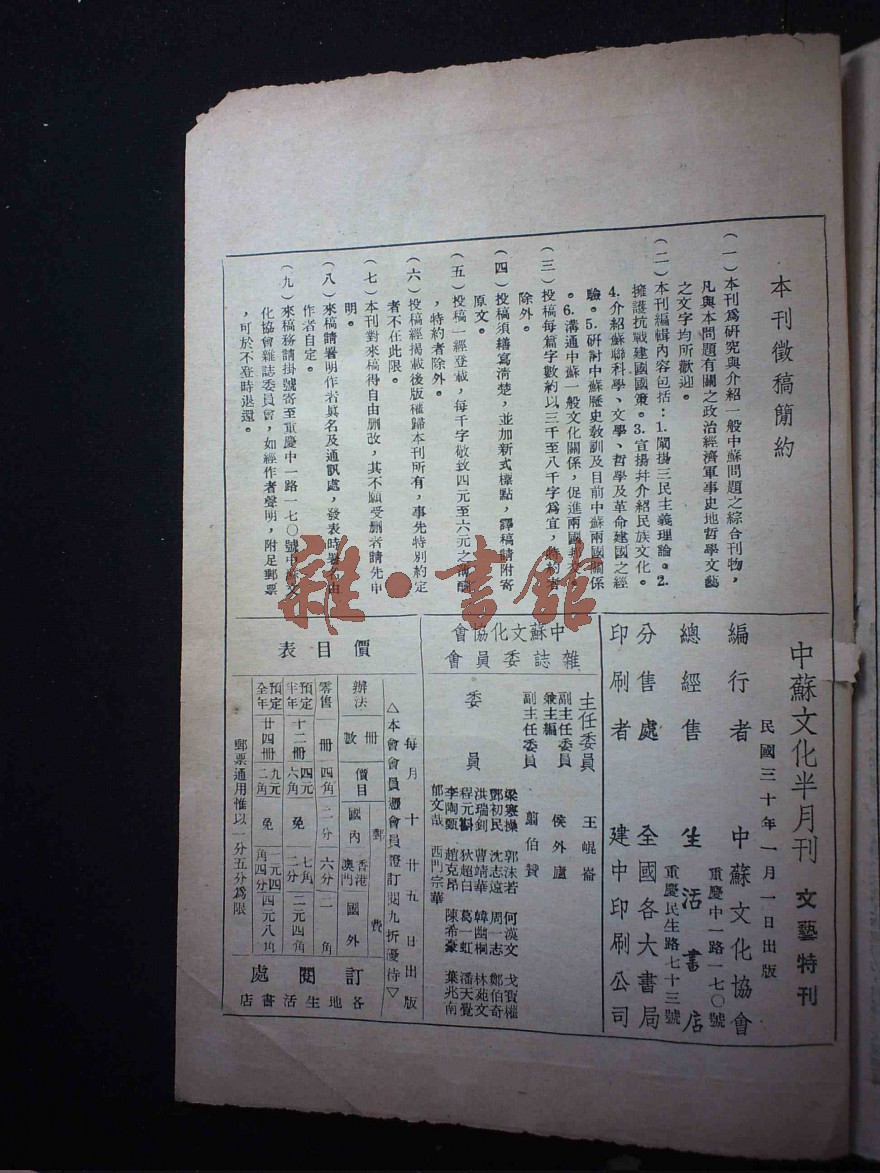 本刊徵稿簡約
(一)本刊爲硏究與介紹一般中蘇問題之綜合刊物,
凡與本問題有關之政治經濟軍事史地哲學文藝
之文字均所歡迎。
(二)本刊編輯內容包括:1.闡揚三民主義理論。2.
擁護抗戰建國國策。3.宣揚幷介紹民族文化。
4.介紹蘇聯科學、文學、哲學及革命建國之經
驗。5.硏討中蘇歷史敎訓及目前中蘇兩國關係
。6.溝通中蘇一般文化關係,促進兩國邦交。
(三)投稿每篇字數約以三千至八千字爲宜,特約者
除外。
(四)投稿須繕寫淸楚,並加新式標點,譯稿請附寄
原文。
(五)投稿一經登載,每千字敬致四元至六元之稿酬
,特約者除外。
(六)投稿經揭載後版權歸本刊所有,事先特別約定
者不在此限。
(七)本刊對來稿得自由删改,其不願受删者請先申
明。
(八)來稿請署明作者眞名及通訊處,發表時署名由
作者自定。
(九)來稿務請掛號寄至重慶中一路一七〇號中蘇文
化協會雜誌委員會,如經作者聲明,附足郵票
,可於不登時退還。
中蘇文化半月刊 文藝特刊
民國三十年一月一日出版
編行者 中蘇文化協會
重慶中一路一七〇號
總經售 生活書店
重慶民生路七十三號
分售處 全國各大書局
印刷者 建中印刷公司
中蘇文化協會
雜誌委員會
主任委員 王崐崙
副主任委員
兼主編 侯外廬
副主任委員 翦伯贊
委員
梁寒操 郭沫若 何漢文 戈寶權
鄧初民 沈志遠 周一志 鄭伯奇
洪瑞釗 曹靖華 韓幽桐 林苑文
程元斟 狄超白 葛一虹 潘天覺
李陶甄 趙克昂 陳希豪 葉兆南
郁文哉 西門宗華
價目表
每月十廿五日出版
△本會會員憑會員證訂閱九折優待▽
辦法 冊數 價目 郵費
國內 香港澳門 國外
零售 一冊 四角 二分 六分 二角
預定半年 十二冊 四元六角 免 七角二分 二元四角
預定全年 廿四冊 九元二角 免 一元四角四分 四元八角
郵票通用惟以一分五分爲限
訂閱處
各地生活書店
雜·書館